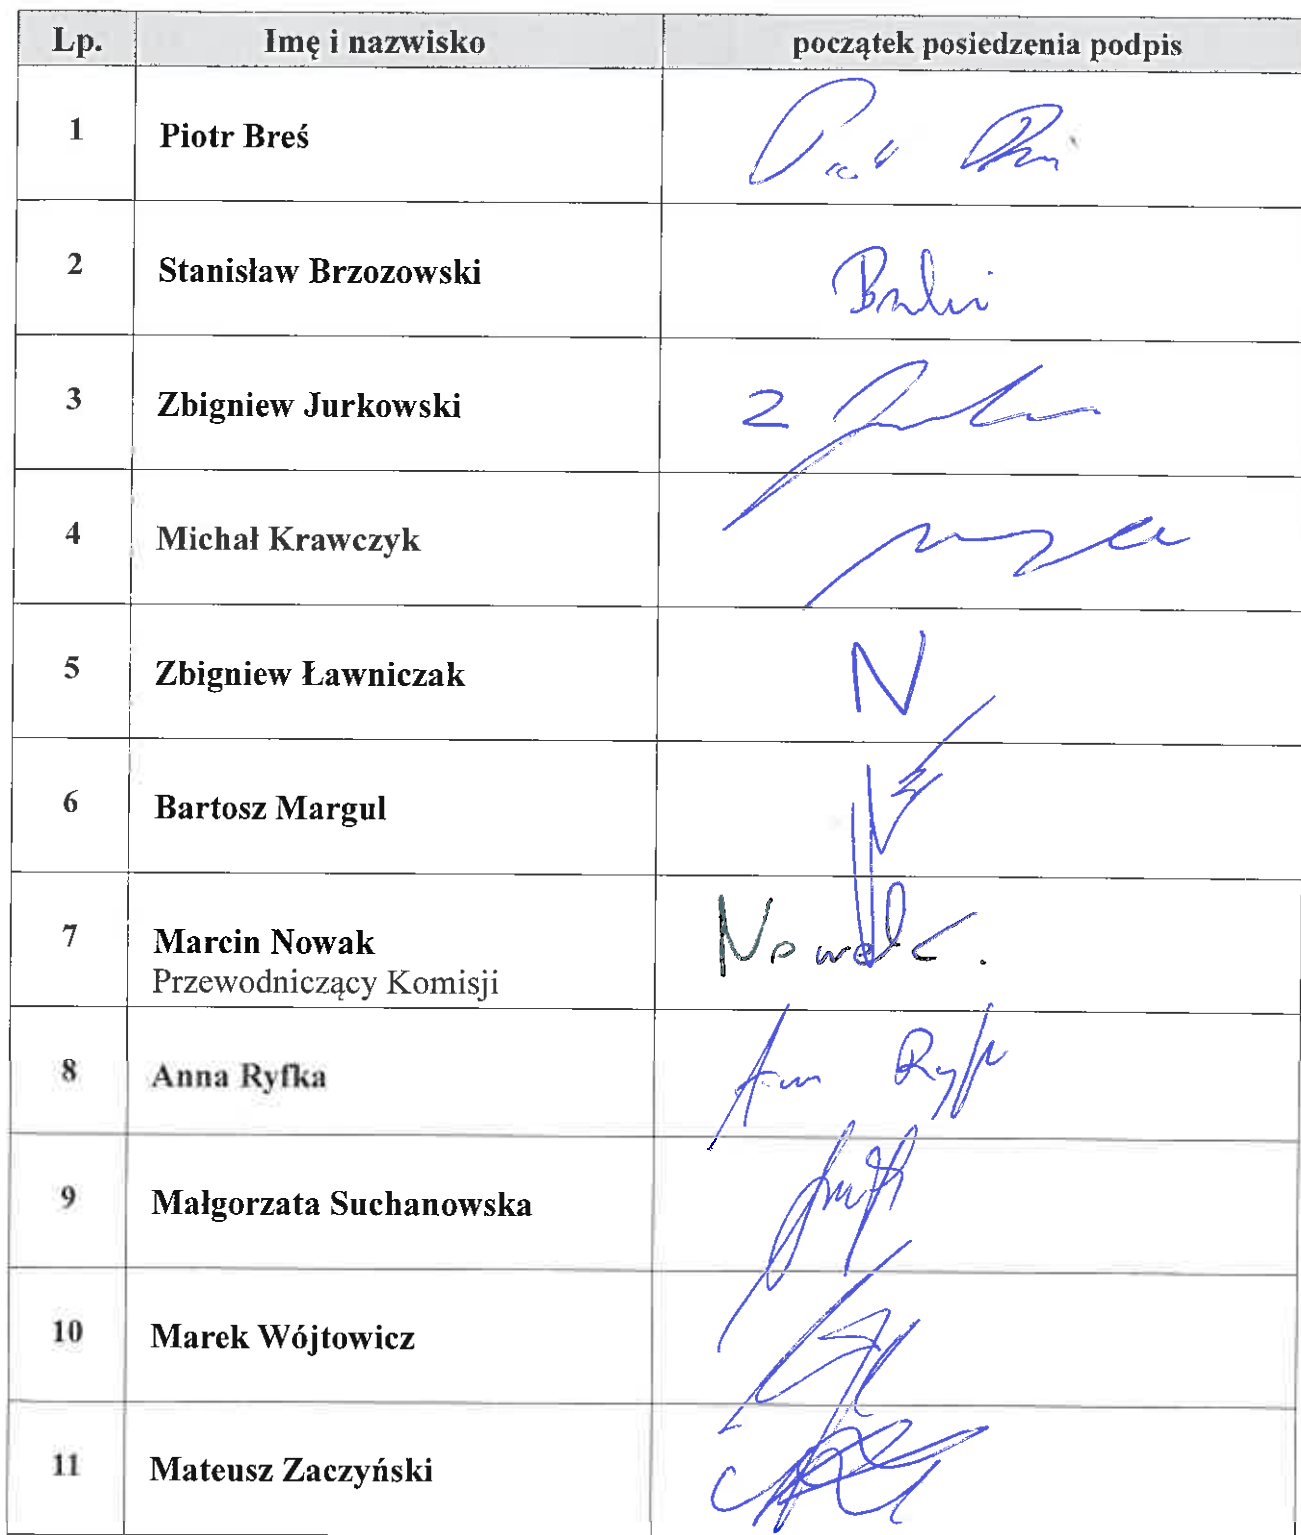 Lp. Imę i nazwisko początek posiedzenia podpis
1 Piotr Breś
2 Stanisław Brzozowski
3 Zbigniew Jurkowski
4 Michał Krawczyk
5 Zbigniew Ławniczak N
6 Bartosz Margul
7 Marcin Nowak Nowak.
Przewodniczący Komisji
8 Anna Ryfka
9 Małgorzata Suchanowska
10 Marek Wójtowicz
11 Mateusz Zaczyński